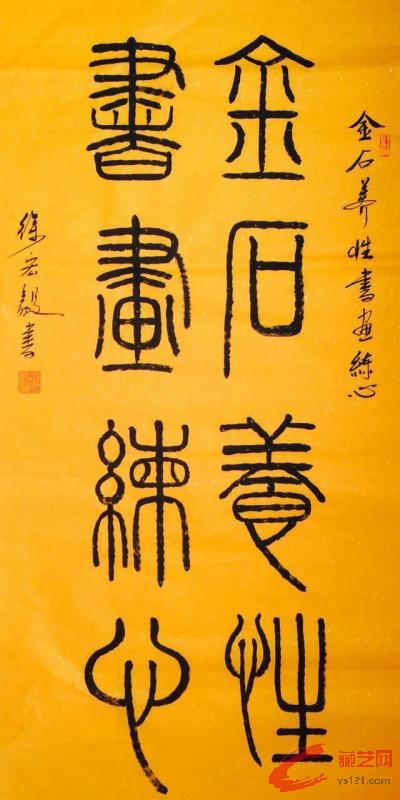 金石養性書畫練心
金石养性
書畫練心
徐宏毅書
藏艺网
ys121.com